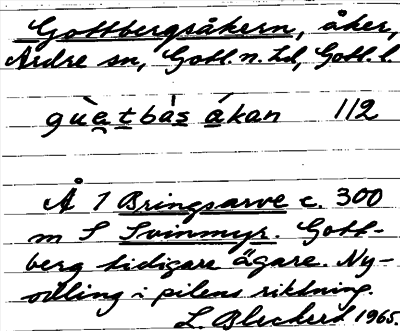 Gottbergsåkern, åker,
Ardre sn, Gotl. n. hd, Gotl. l.
gùetbàs ákan 112
Å 1 Bringsarve c. 300
m S Svinmyr. Gott-
berg tidigare ägare. Ny-
odling i pilens riktning.
L. Blechert 1965.